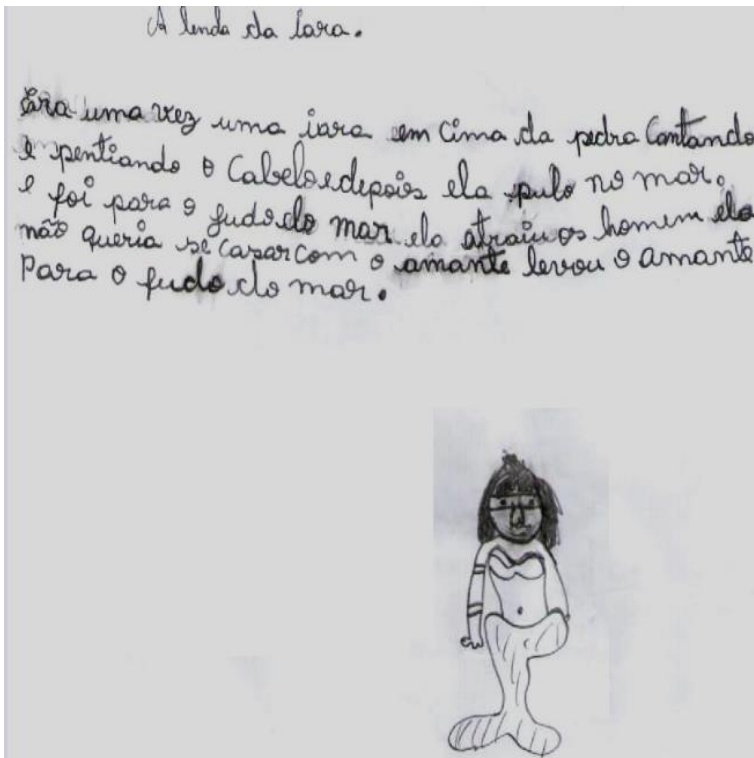 A lenda da Iara.
Era uma vez uma iara em cima da pedra Cantando
e pentiando o Cabelo e depois ela pulo no mar.
e foi para o fudo do mar ela atraiu os homem ela
não queria se casar com o amante levou o amante
Para o fudo do mar.